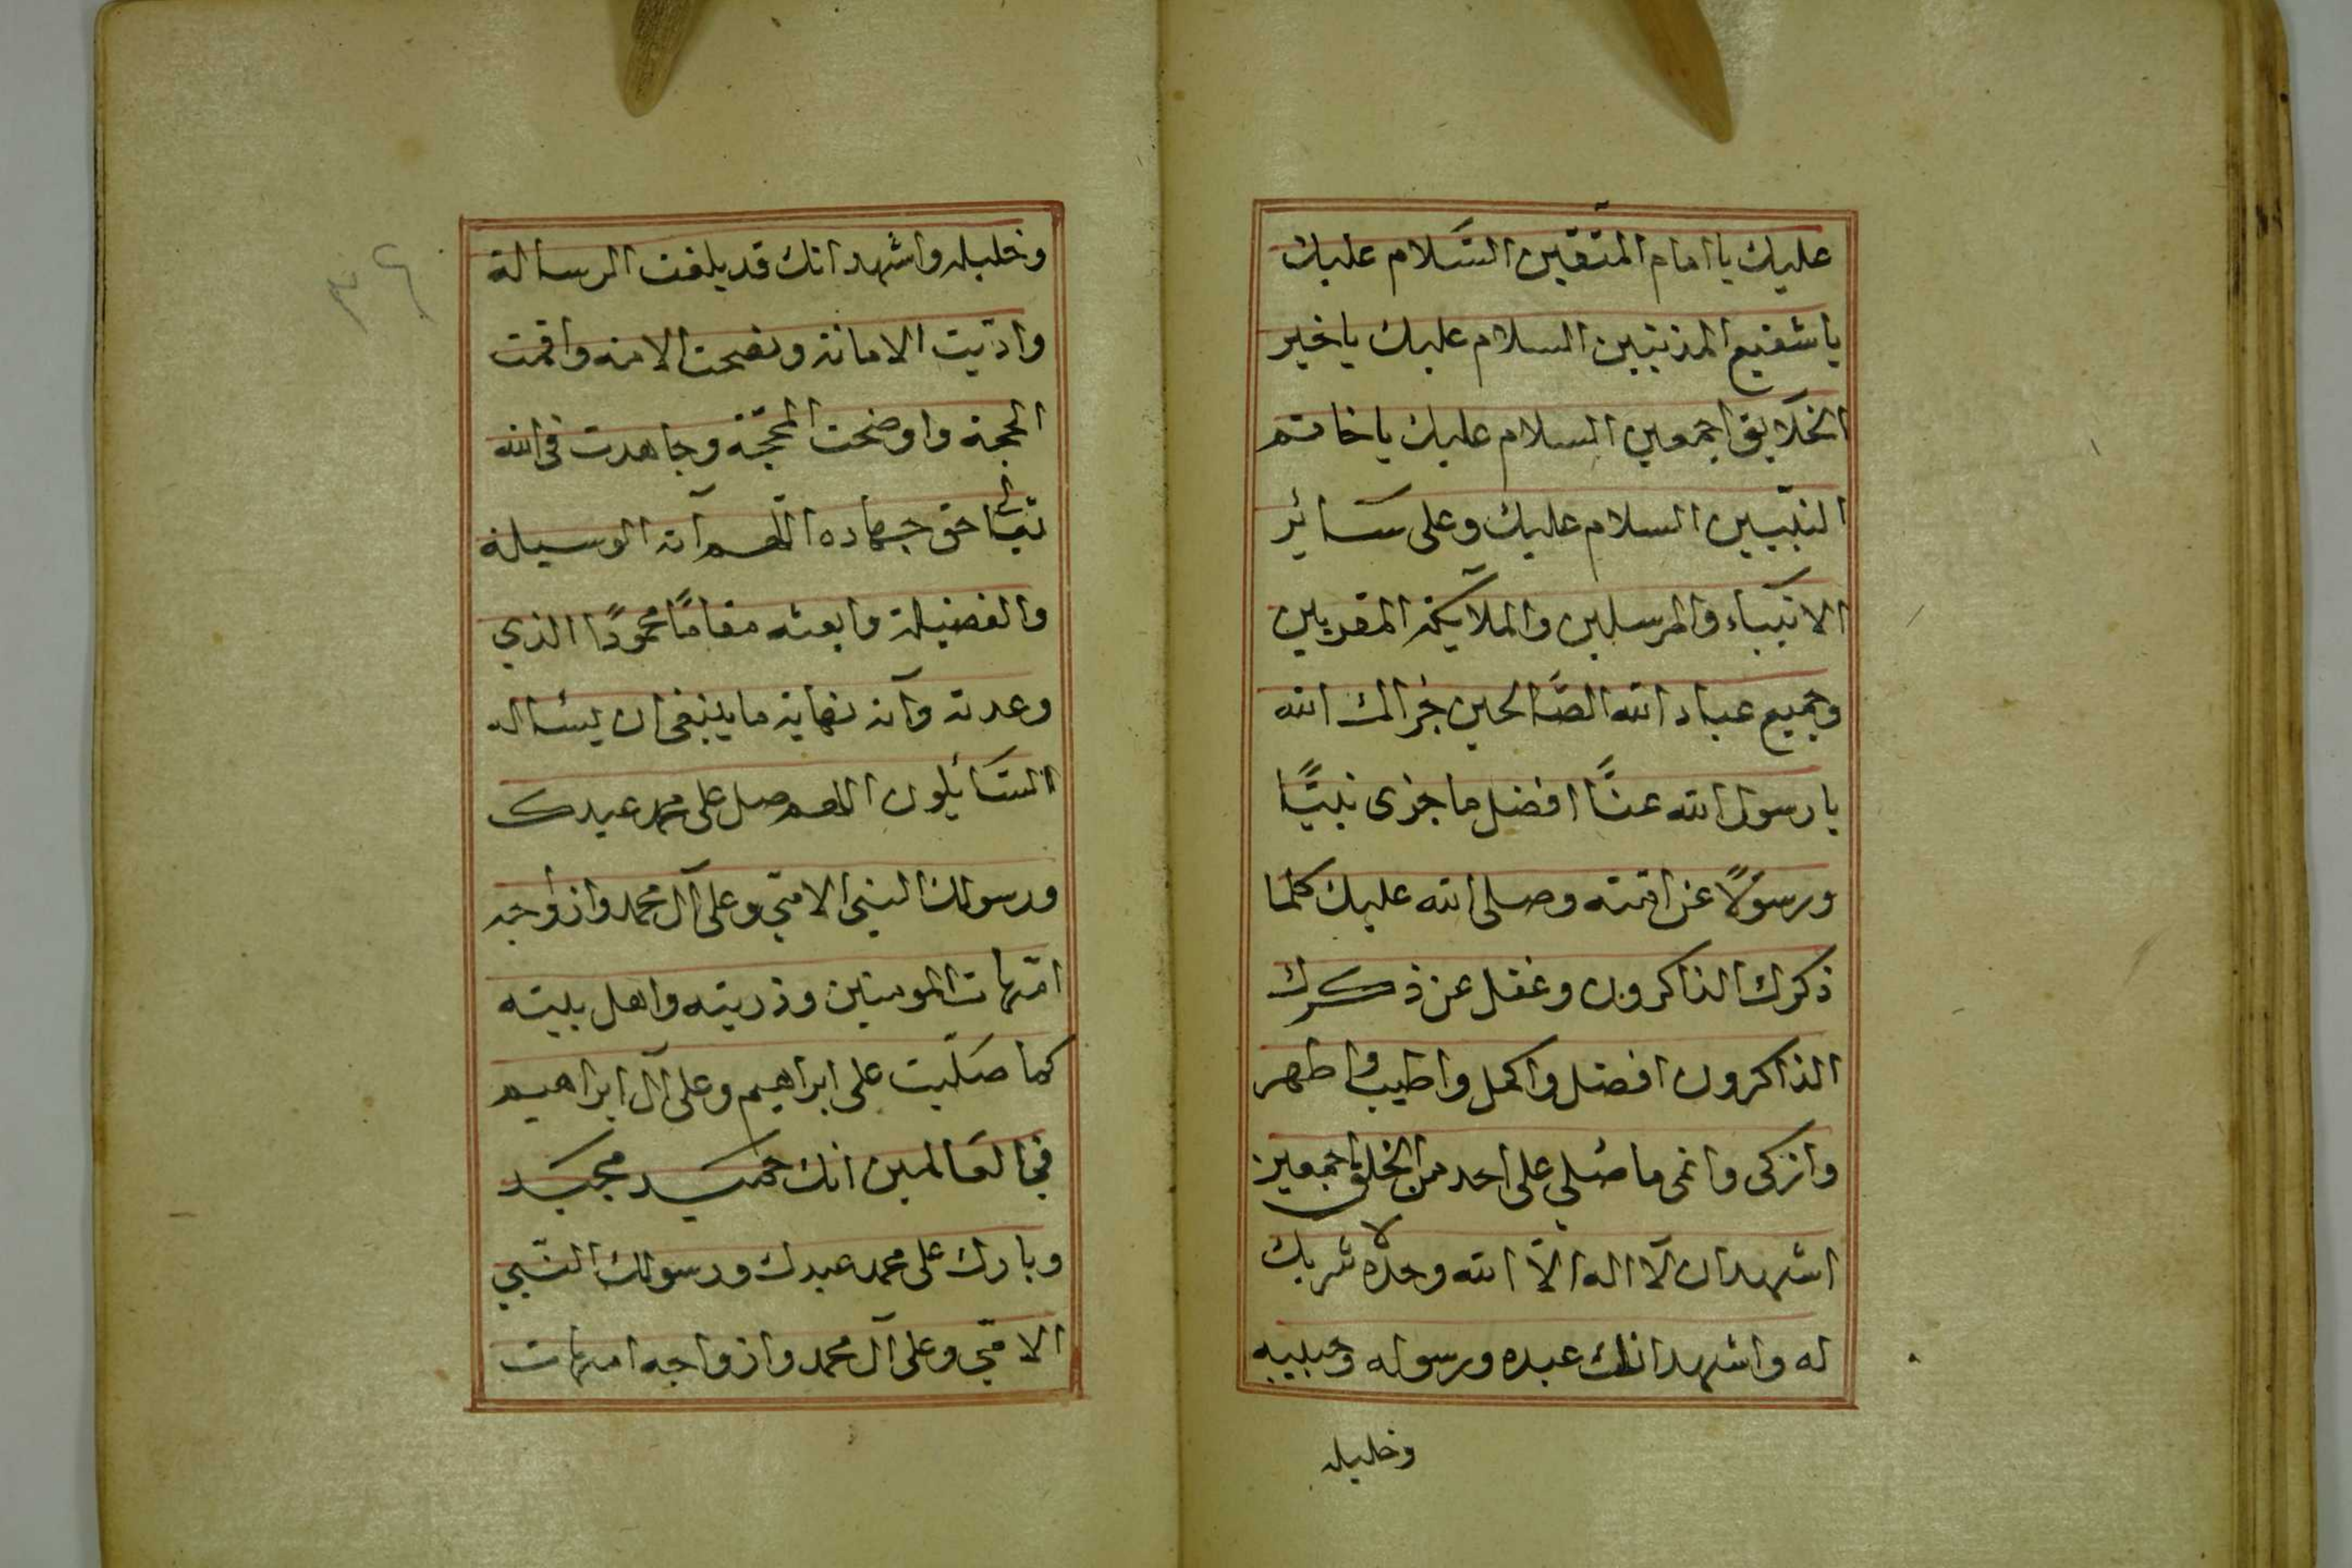 عليك يا امام المتّقين السّلام عليك
يا شفيع المذنبين السلام عليك يا خير
الخلايق اجمعين السلام عليك يا خاتم
النبّيين السلام عليك وعلى سائر
الانبياء والمرسلين والملآيكة المقربين
وجميع عباد الله الصّالحين جزاك الله
يا رسول الله عنّا افضل ما جزى نبيًّا
ورسولًا عن امّته وصلى الله عليك كلما
ذكرك الذاكرون وغفل عن ذكرك
الذاكرون افضل واكمل واطيب واطهر
وازكى وانمى ما صُلي على احد من الخلق اجمعين
اشهد ان لآ اله الاّ الله وحده لا شريك
له واشهد انك عبده ورسوله وحبيبه
وخليله
٣٤
وخليله واشهد انك قد بلغت الرسالة
وادّيت الامانة ونصحت الامة واقمت
الحجة واوضحت المحجّة وجاهدت في الله
تعالى حق جهاده اللّهم آته الوسيلة
والفضيلة وابعثه مقامًا محمودًا الذي
وعدته وآته نهاية ما ينبغي ان يسئاله
السّائلون اللهم صل على محمد عبدك
ورسولك النبي الامّي وعلى آل محمد وازواجه
امّهات المومنين وذريته واهل بيته
كما صلّيت على ابراهيم وعلى آل ابراهيم
في العالمين انك حميد مجيد
وبارك على محمد عبدك ورسولك النّبي
الامّي وعلى آل محمد وازواجه امهات